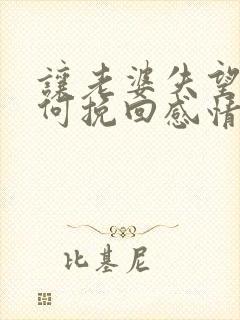 讓老婆失望
何挽回感情
比基尼